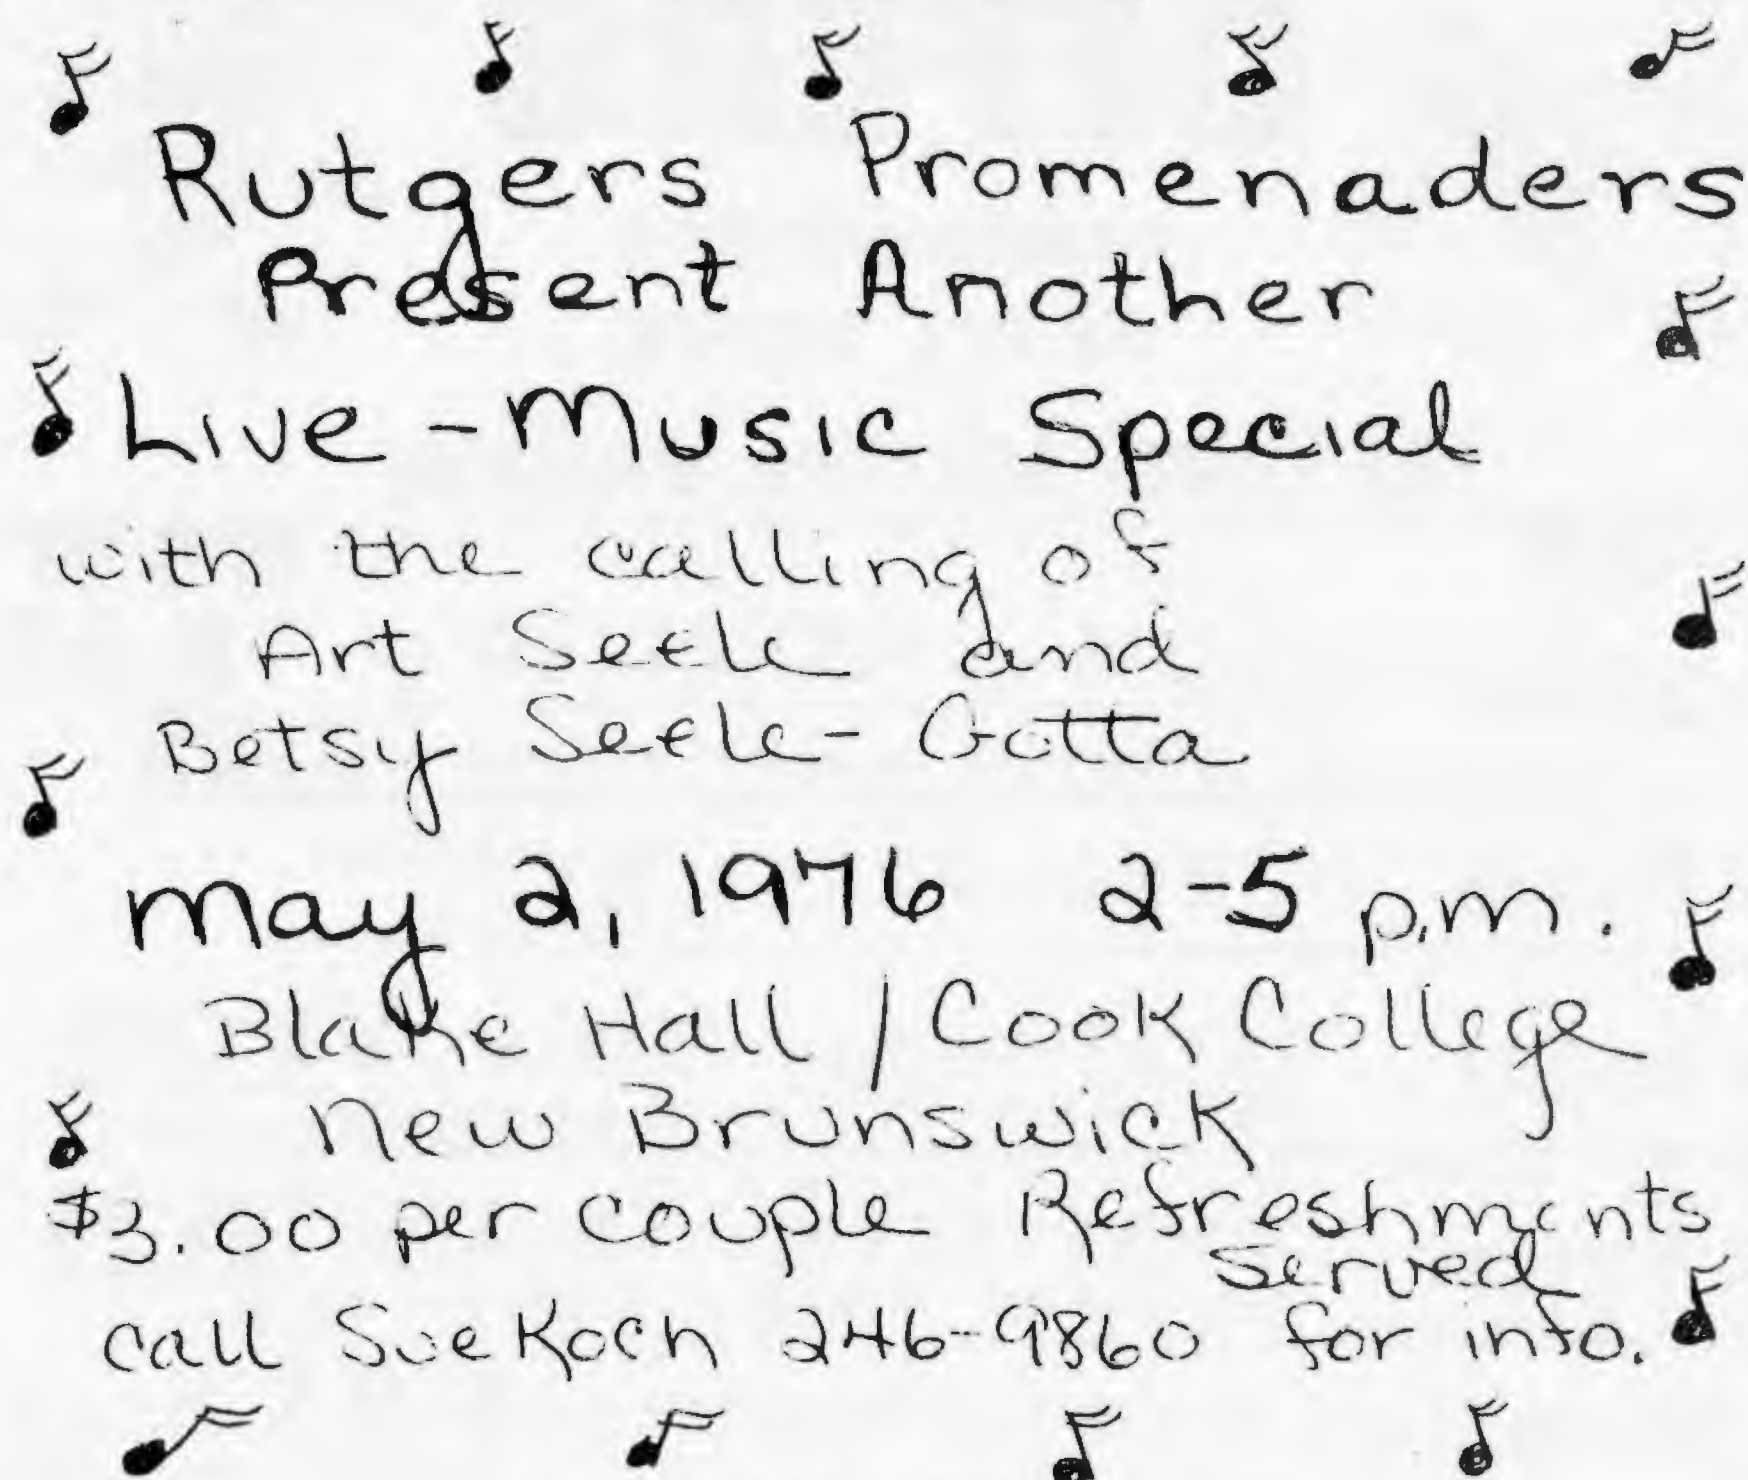 Rutgers Promenaders
Present Another
Live-Music Special
with the calling of
Art Seele and
Betsy Seele-Gotta
May 2, 1976 2-5 p.m.
Blake Hall / Cook College
New Brunswick
$3.00 per couple Refreshments
served
call Sue Koch 246-9860 for info.